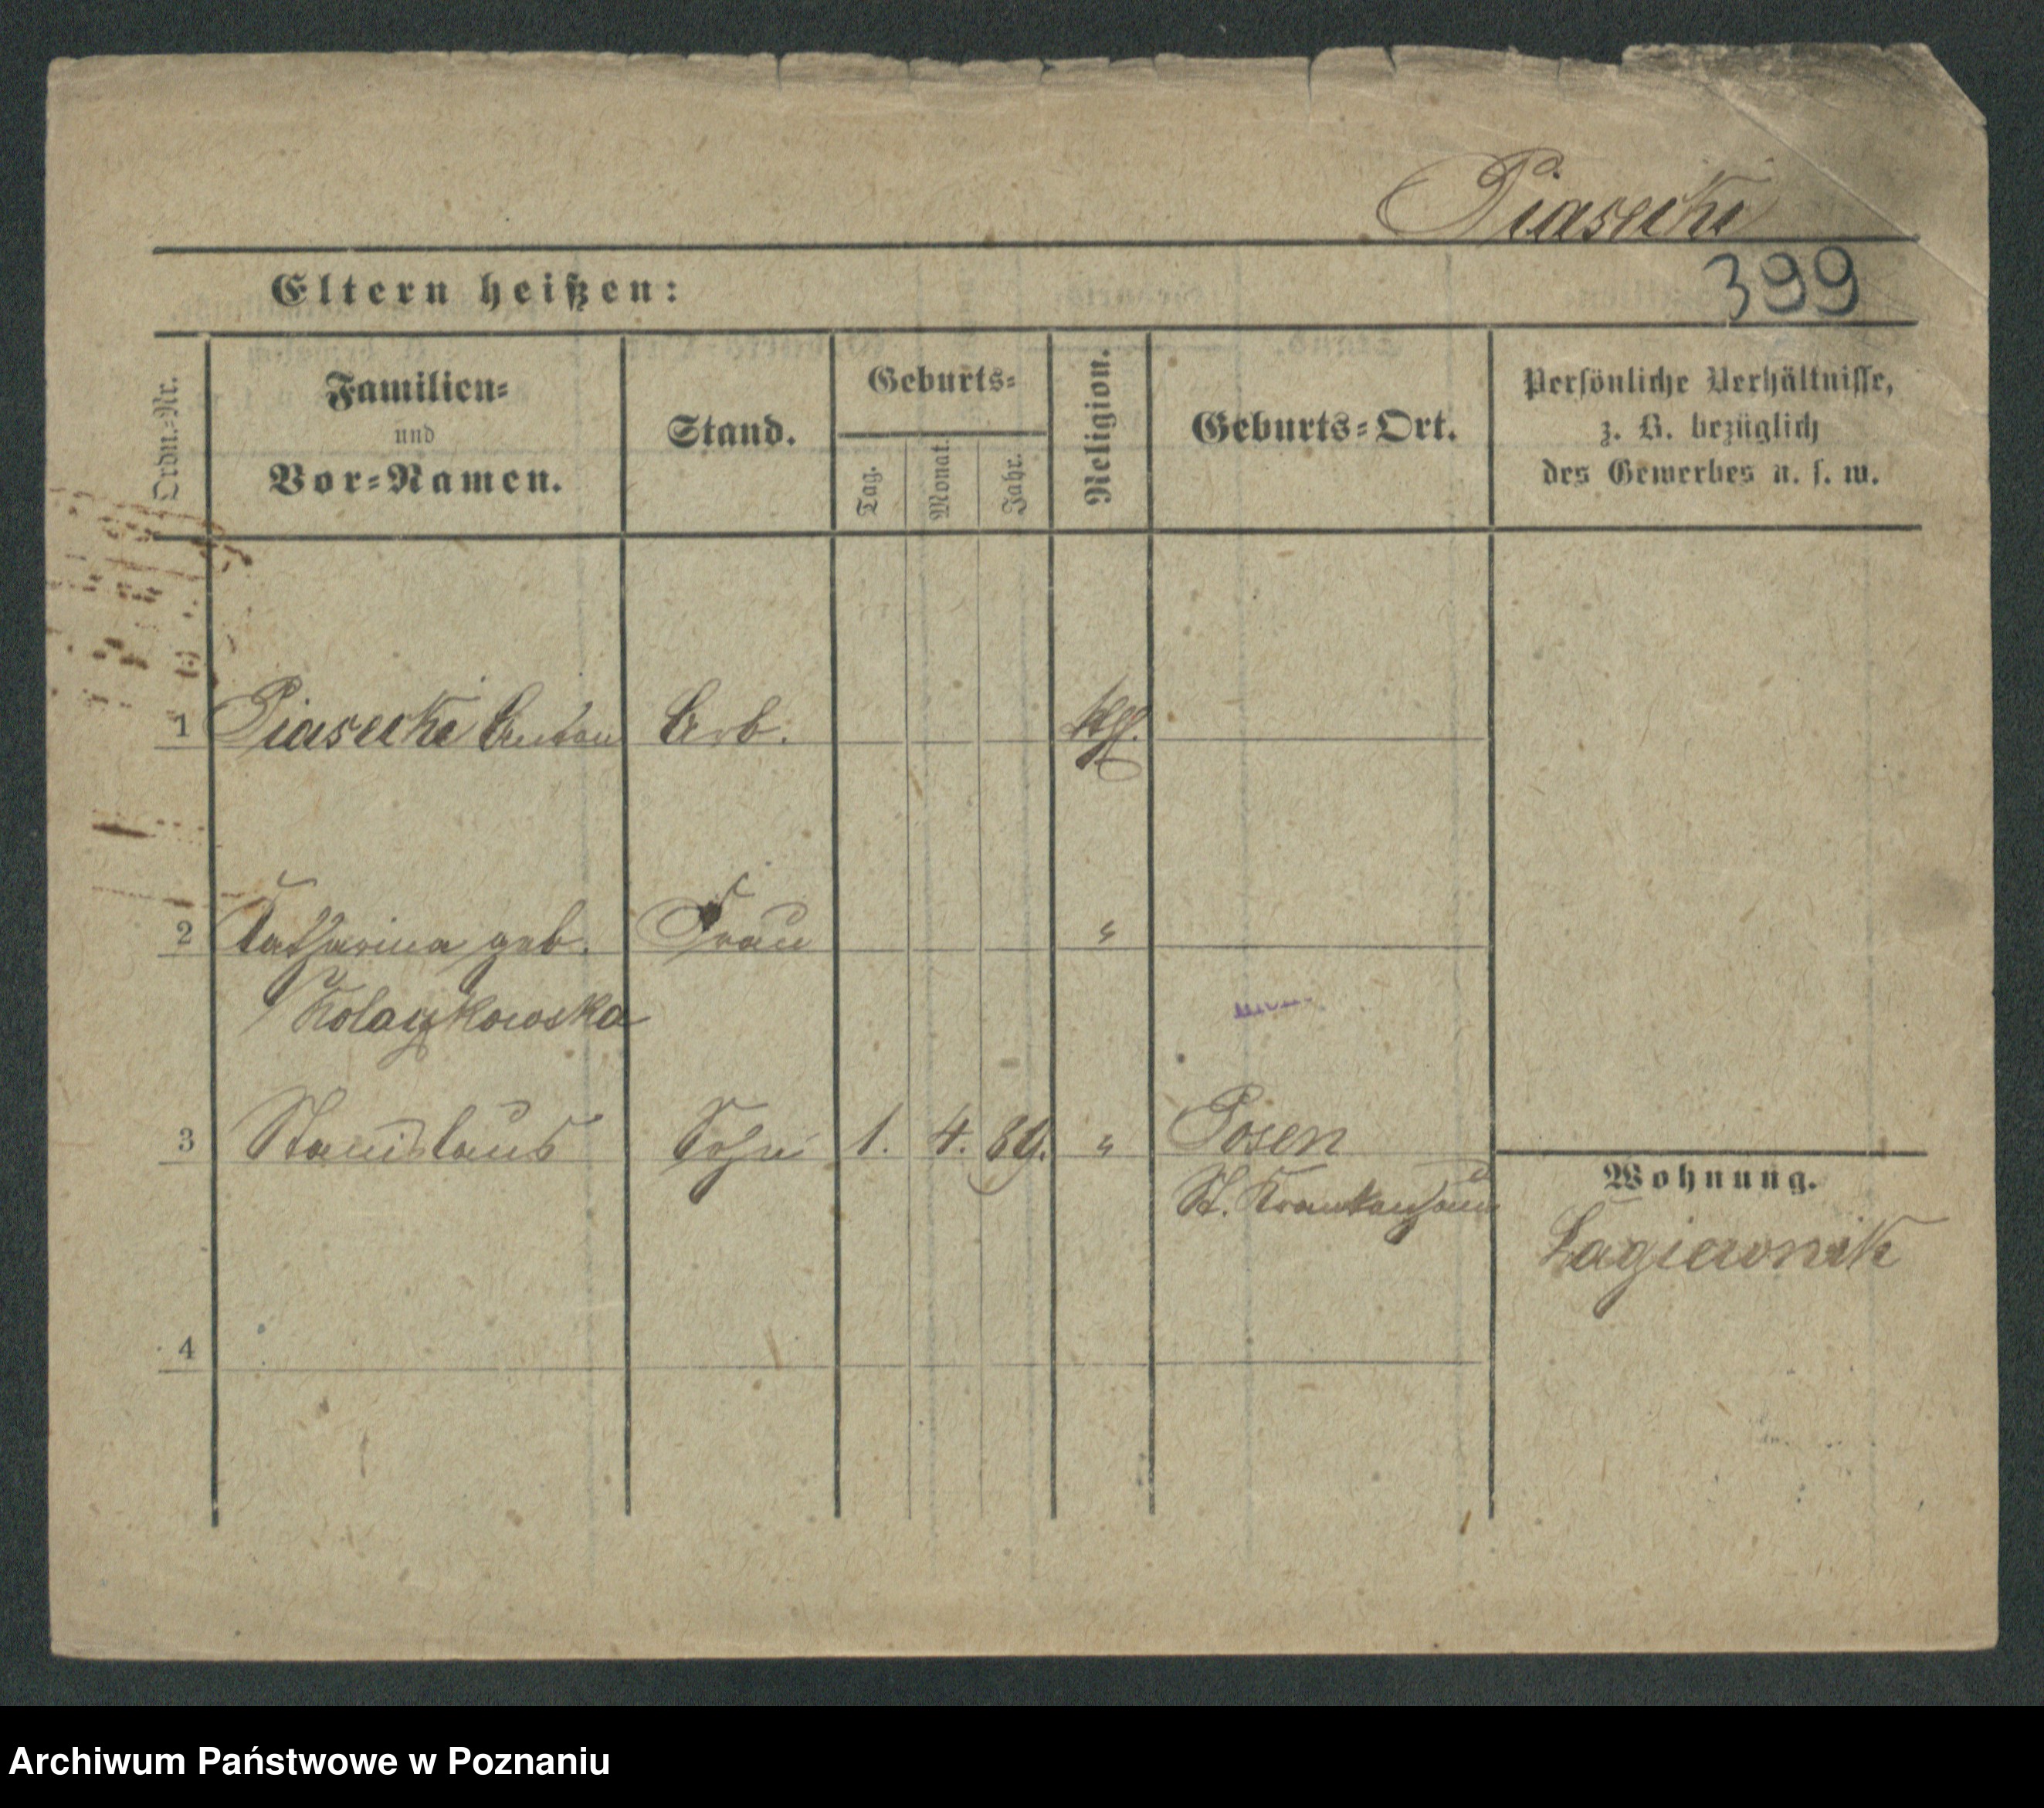 Piasecki
Eltern heißen:
399
Ordn.-Nr.
Familien-
und
Vor-Namen.
Stand.
Geburts-
Tag.
Monat.
Jahr.
Religion.
Geburts-Ort.
Persönliche Verhältnisse,
z. B. bezüglich
des Gewerbes u. s. w.
1 Piasecki Anton Arb. kth.
2 Catharina geb. Frau "
Kolaczkowska
3 Stanislaus Sohn 1. 4. 89. " Posen
St. Krankenhaus
Wohnung.
Lagiewnik
4
Archiwum Państwowe w Poznaniu